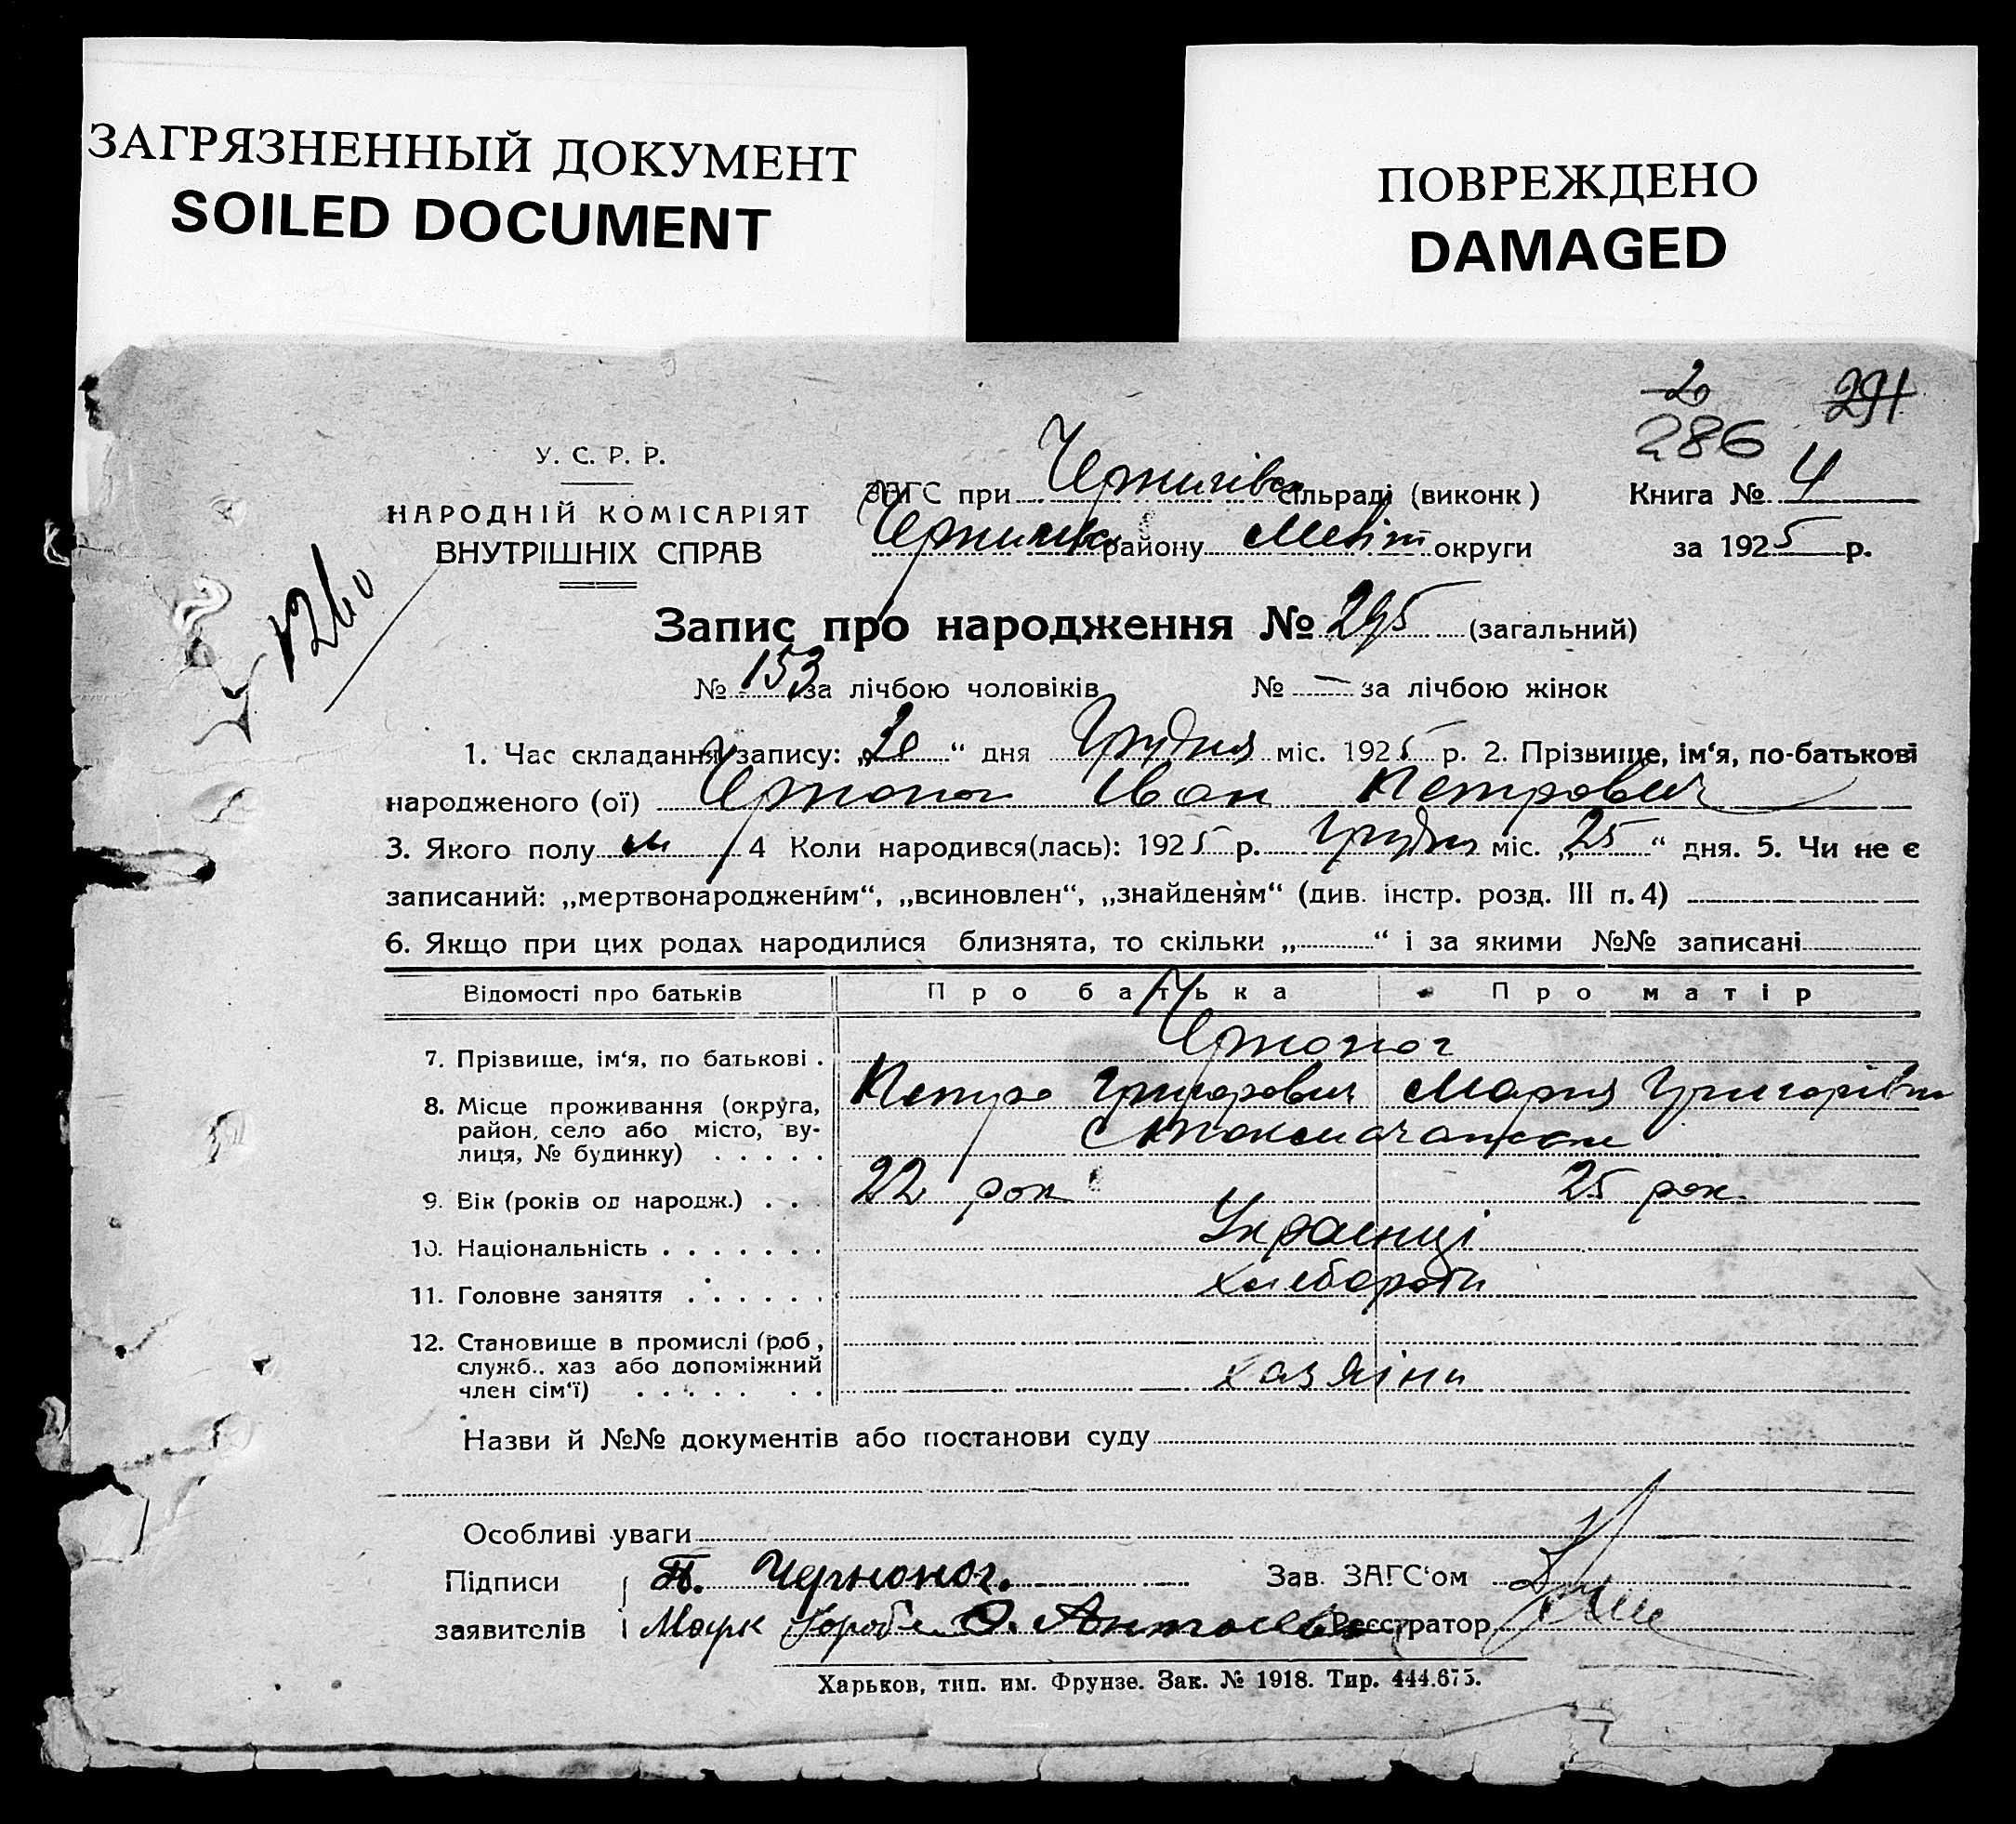 ЗАГРЯЗНЕННЫЙ ДОКУМЕНТ
SOILED DOCUMENT
ПОВРЕЖДЕНО
DAMAGED
20 291
286
У. С. Р. Р.
НАРОДНІЙ КОМІСАРІЯТ
ВНУТРІШНІХ СПРАВ
1260
ЗАГС при Чернигівск сільраді (виконк) Книга № 4
району Меліт округи за 1925 р.
Запис про народження № 295 (загальний)
№ 153 за лічбою чоловіків № — за лічбою жінок
1. Час складання запису: „ “ дня Грудня міс. 1925 р. 2. Прізвище, ім‘я, по-батькові
народженого (ої) Чорноног Іван Петрович
3. Якого полу м 4 Коли народився(лась): 1925 р. Грудня міс. „25“ дня. 5. Чи не є
записаний: „мертвонародженим“, „всиновлен“, „знайденям“ (див. інстр. розд. III п. 4)
6. Якщо при цих родах народилися близнята, то скільки „ “ і за якими №№ записані
Відомості про батьків Про батька Про матір
7. Прізвище, ім‘я, по батькові . Чорноног
Петро Григорович Мария Григорівна
8. Місце проживання (округа, район, село або місто, ву-
лиця, № будинку) . . . . .
9. Вік (років од народж.) . . 22 рок 25 рок.
10. Національність . . . . . . . Українці
11. Головне заняття . . . . . . хлебороби
12. Становище в промислі (роб., служб., хаз або допоміжний
член сім‘ї) . . . . . . . хазяіни
Назви й №№ документів або постанови суду
Особливі уваги
Підписи П. Черноног. Зав. ЗАГС‘ом
заявителів Марк Реєстратор
Харьков, тип. им. Фрунзе. Зак. № 1918. Тир. 444.675.